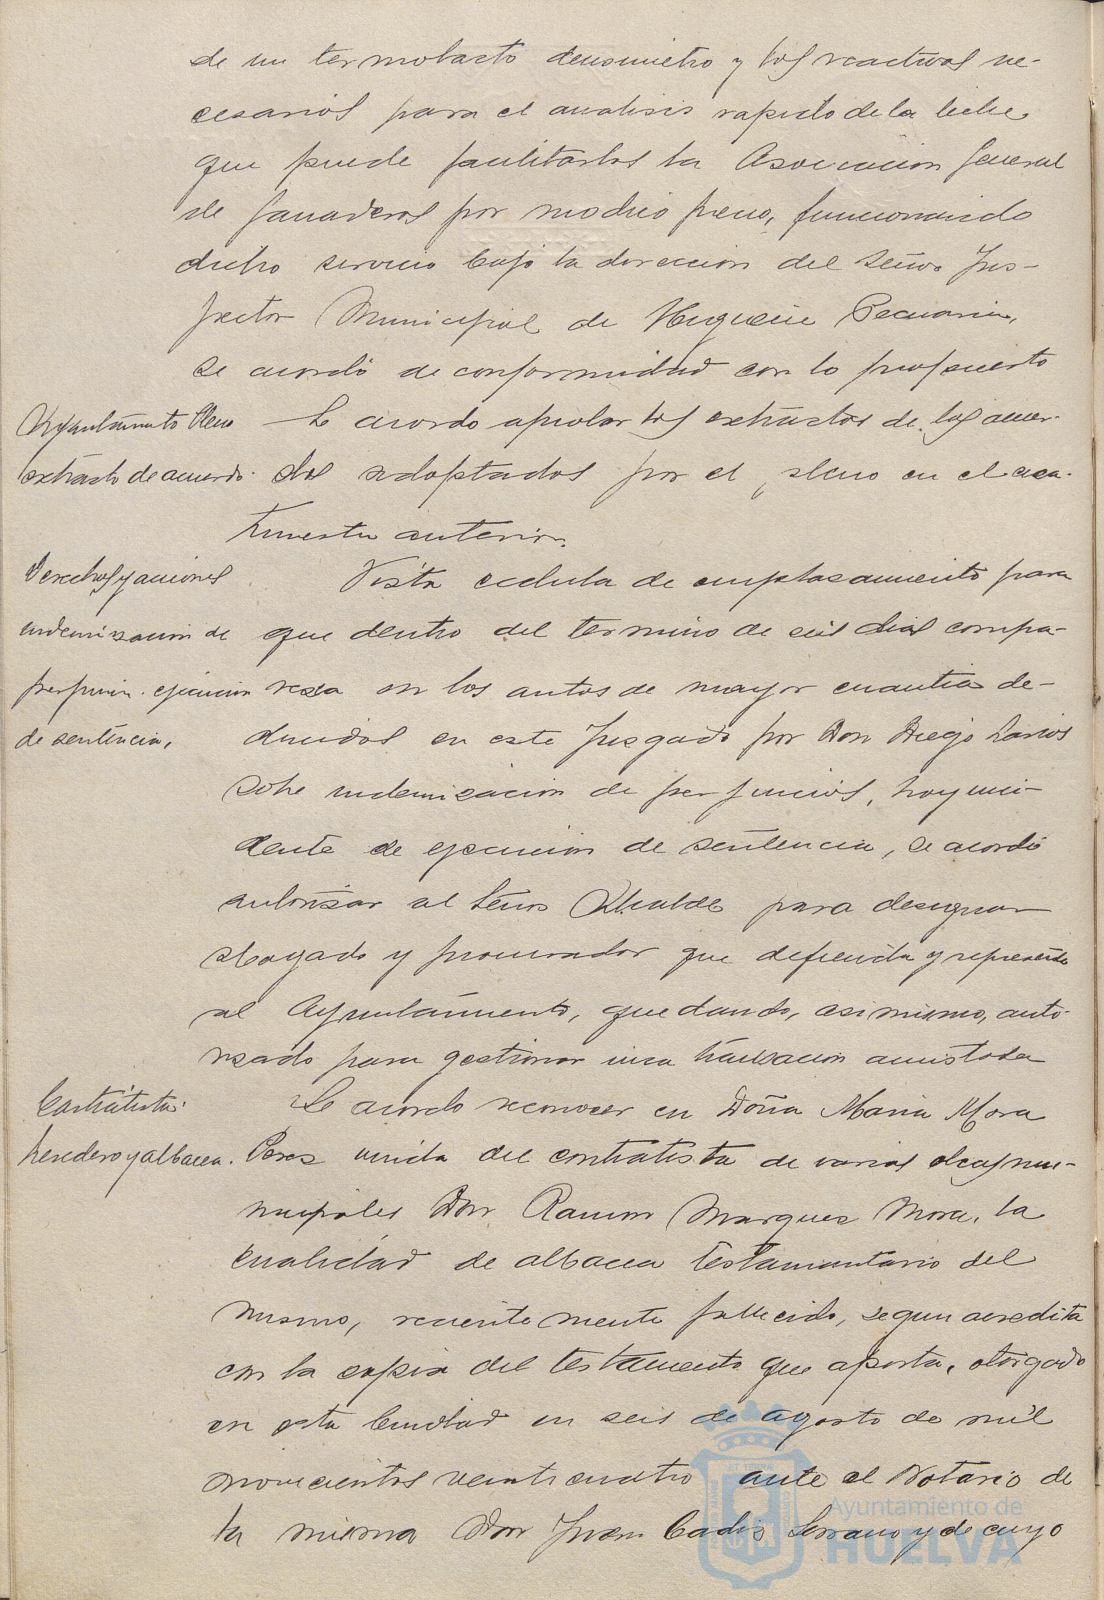 de un termolacto densimetro y los reactivos ne-
cesarios para el analisis rapido de la leche
que puede facilitarlos la Asociacion General
de Ganaderos por modico precio, funcionando
dicho servicio bajo la direccion del Señor Ins-
pector Municipal de Higiene Pecuaria,
se acordó de conformidad con lo propuesto
Ayuntamiento Pleno
extracto de acuerdo.
Se acordo aprobar los extractos de los acuer-
dos adoptados por el pleno en el cua-
trimestre anterior.
Derechos y acciones
indemnizacion de
perjuicios. ejecucion
de sentencia.
Vista cedula de emplasamiento para
que dentro del termino de seis dias compa-
resca en los autos de mayor cuantia de-
ducidos en este Jusgado por Don Diego Larios
sobre indemnizacion de perjuicios, hoy inci-
dente de ejecucion de sentencia, se acordó
autorisar al Señor Alcalde para designar
abogado y procurador que defienda y represente
al Ayuntamiento, quedando, asimismo, auto-
risado para gestionar una transacion amistosa
Contratista.
heredero y albacea.
Se acordo reconocer en Doña Maria Mora
Peres viuda del contratista de varias obras mu-
nicipales Don Ramon Marquez Mora, la
cualidad de albacea testamentario del
mismo, recientemente fallecido, segun acredita
con la copia del testamento que aporta, otorgado
en esta Ciudad en seis de agosto de mil
novecientos veinticuatro ante el Notario de
la misma Don Juan Cadis Serrano y de cuyo
Ayuntamiento de
HUELVA